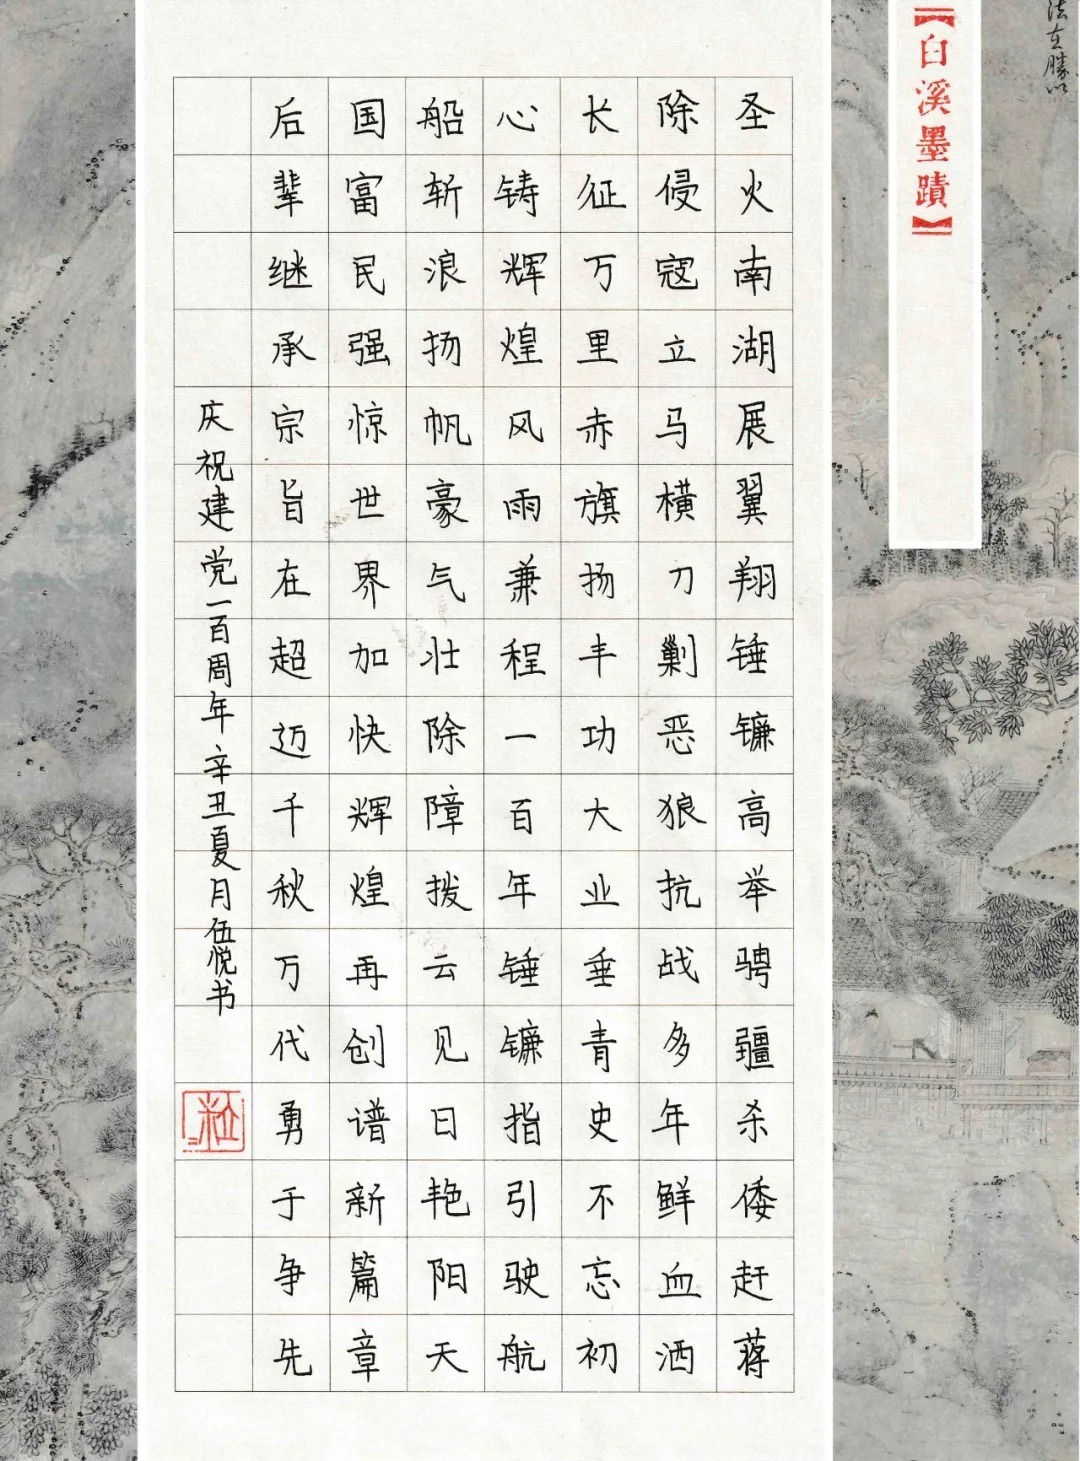 法在胜以
【白溪墨蹟】
圣火南湖展翼翔锤镰高举骋疆杀倭赶蒋
除侵寇立马横刀剿恶狼抗战多年鲜血洒
长征万里赤旗扬丰功大业垂青史不忘初
心铸辉煌风雨兼程一百年锤镰指引驶航
船斩浪扬帆豪气壮除障拨云见日艳阳天
国富民强惊世界加快辉煌再创谱新篇章
后辈继承宗旨在超迈千秋万代勇于争先
庆祝建党一百周年辛丑夏月伍悦书